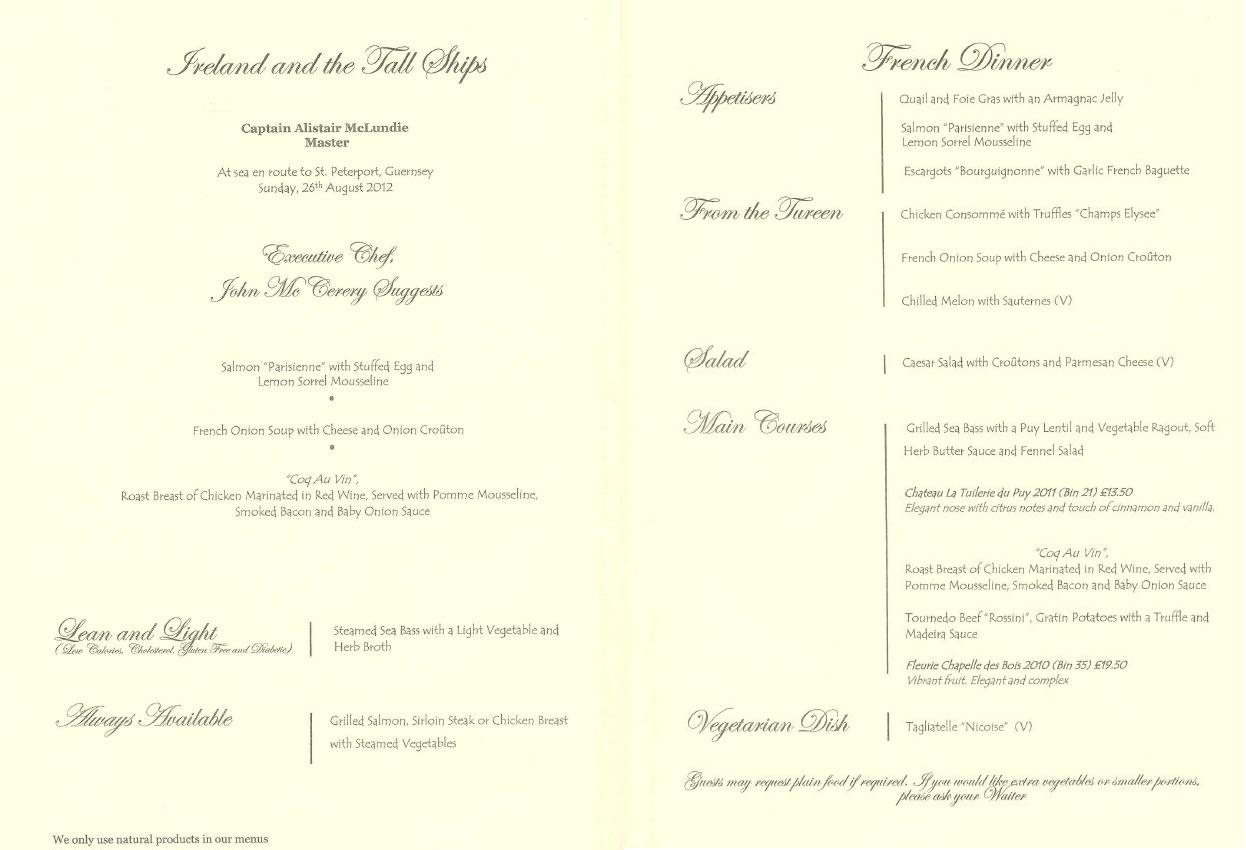 Ireland and the Tall Ships
Captain Alistair McLundie
Master
At sea en route to St. Peterport, Guernsey
Sunday, 26th August 2012
Executive Chef,
John Mc Cerery Suggests
Salmon "Parisienne" with Stuffed Egg and
Lemon Sorrel Mousseline
•
French Onion Soup with Cheese and Onion Croûton
•
"Coq Au Vin",
Roast Breast of Chicken Marinated in Red Wine, Served with Pomme Mousseline,
Smoked Bacon and Baby Onion Sauce
Lean and Light
(Low Calories, Cholosterol, Gluten Free and Diabetic)
Steamed Sea Bass with a Light Vegetable and
Herb Broth
Always Available
Grilled Salmon, Sirloin Steak or Chicken Breast
with Steamed Vegetables
We only use natural products in our menus
French Dinner
Appetisers
Quail and Foie Gras with an Armagnac Jelly
Salmon "Parisienne" with Stuffed Egg and
Lemon Sorrel Mousseline
Escargots "Bourguignonne" with Garlic French Baguette
From the Tureen
Chicken Consommé with Truffles "Champs Elysee"
French Onion Soup with Cheese and Onion Croûton
Chilled Melon with Sauternes (V)
Salad
Caesar Salad with Croûtons and Parmesan Cheese (V)
Main Courses
Grilled Sea Bass with a Puy Lentil and Vegetable Ragout, Soft
Herb Butter Sauce and Fennel Salad
Chateau La Tuilerie du Puy 2011 (Bin 21) £13.50
Elegant nose with citrus notes and touch of cinnamon and vanilla.
"Coq Au Vin",
Roast Breast of Chicken Marinated in Red Wine, Served with
Pomme Mousseline, Smoked Bacon and Baby Onion Sauce
Tournedo Beef "Rossini", Gratin Potatoes with a Truffle and
Madeira Sauce
Fleurie Chapelle des Bois 2010 (Bin 35) £19.50
Vibrant fruit. Elegant and complex
Vegetarian Dish
Tagliatelle "Nicoise" (V)
Guests may request plain food if required. If you would like extra vegetables or smaller portions,
please ask your Waiter